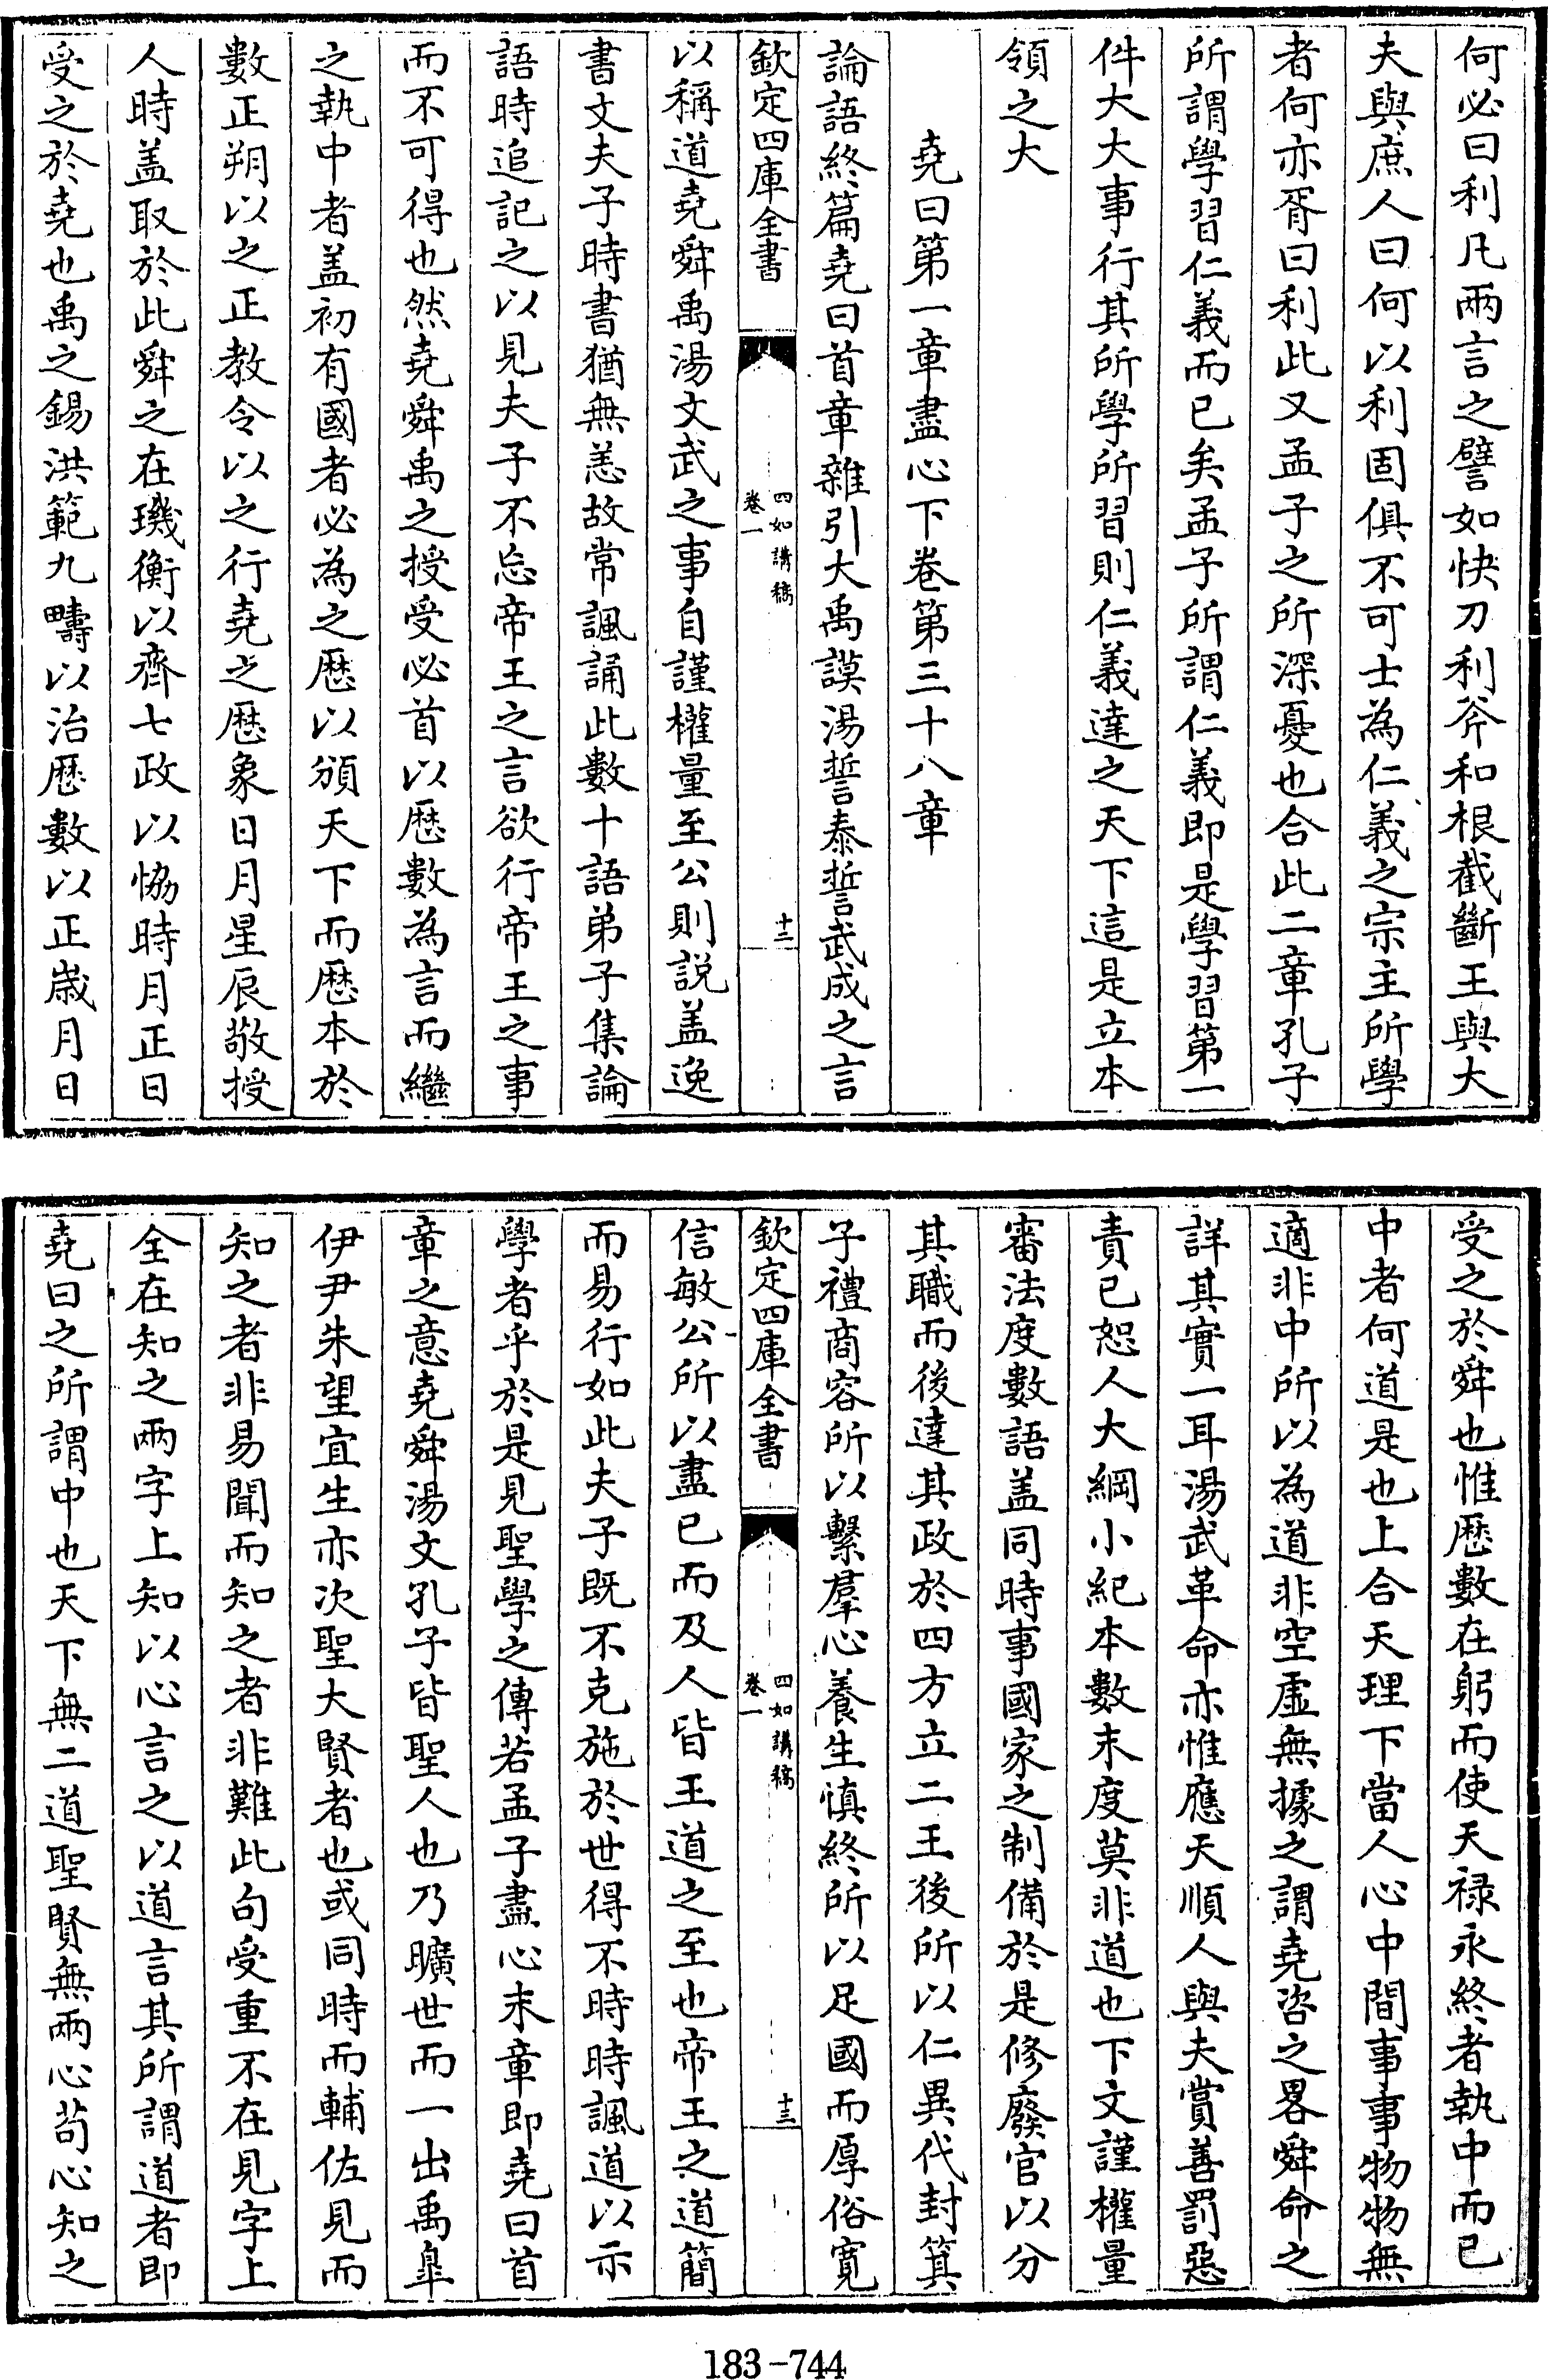 何必曰利凡兩言之譬如快刀利斧和根截斷王與大
夫與庶人曰何以利固俱不可士為仁義之宗主所學
者何亦胥曰利此又孟子之所深憂也合此二章孔子
所謂學習仁義而已矣孟子所謂仁義即是學習第一
件大大事行其所學所習則仁義達之天下這是立本
領之大
堯曰第一章盡心下卷第三十八章
論語終篇堯曰首章雜引大禹謨湯誓泰誓武成之言
欽定四庫全書
四如講稿
卷一
十二
以稱道堯舜禹湯文武之事自謹權量至公則說盖逸
書文夫子時書猶無恙故常諷誦此數十語弟子集論
語時追記之以見夫子不忘帝王之言欲行帝王之事
而不可得也然堯舜禹之授受必首以厯數為言而繼
之執中者盖初有國者必為之厯以頒天下而厯本於
數正朔以之正教令以之行堯之厯象日月星辰敬授
人時盖取於此舜之在璣衡以齊七政以恊時月正日
受之於堯也禹之錫洪範九疇以治厯數以正嵗月日
受之於舜也惟厯數在躬而使天禄永終者執中而已
中者何道是也上合天理下當人心中間事事物物無
適非中所以為道非空虛無據之謂堯咨之畧舜命之
詳其實一耳湯武革命亦惟應天順人與夫賞善罰惡
責已恕人大綱小紀本數末度莫非道也下文謹權量
審法度數語盖同時事國家之制備於是修廢官以分
其職而後達其政於四方立二王後所以仁異代封箕
子禮商容所以繫羣心養生慎終所以足國而厚俗寛
欽定四庫全書
四如講稿
卷一
十三
信敏公所以盡已而及人皆王道之至也帝王之道簡
而易行如此夫子既不克施於世得不時時諷道以示
學者乎於是見聖學之傳若孟子盡心末章即堯曰首
章之意堯舜湯文孔子皆聖人也乃曠世而一出禹臯
伊尹朱望宜生亦次聖大賢者也或同時而輔佐見而
知之者非易聞而知之者非難此句受重不在見字上
全在知之兩字上知以心言之以道言其所謂道者即
堯曰之所謂中也天下無二道聖賢無兩心茍心知之
183-744